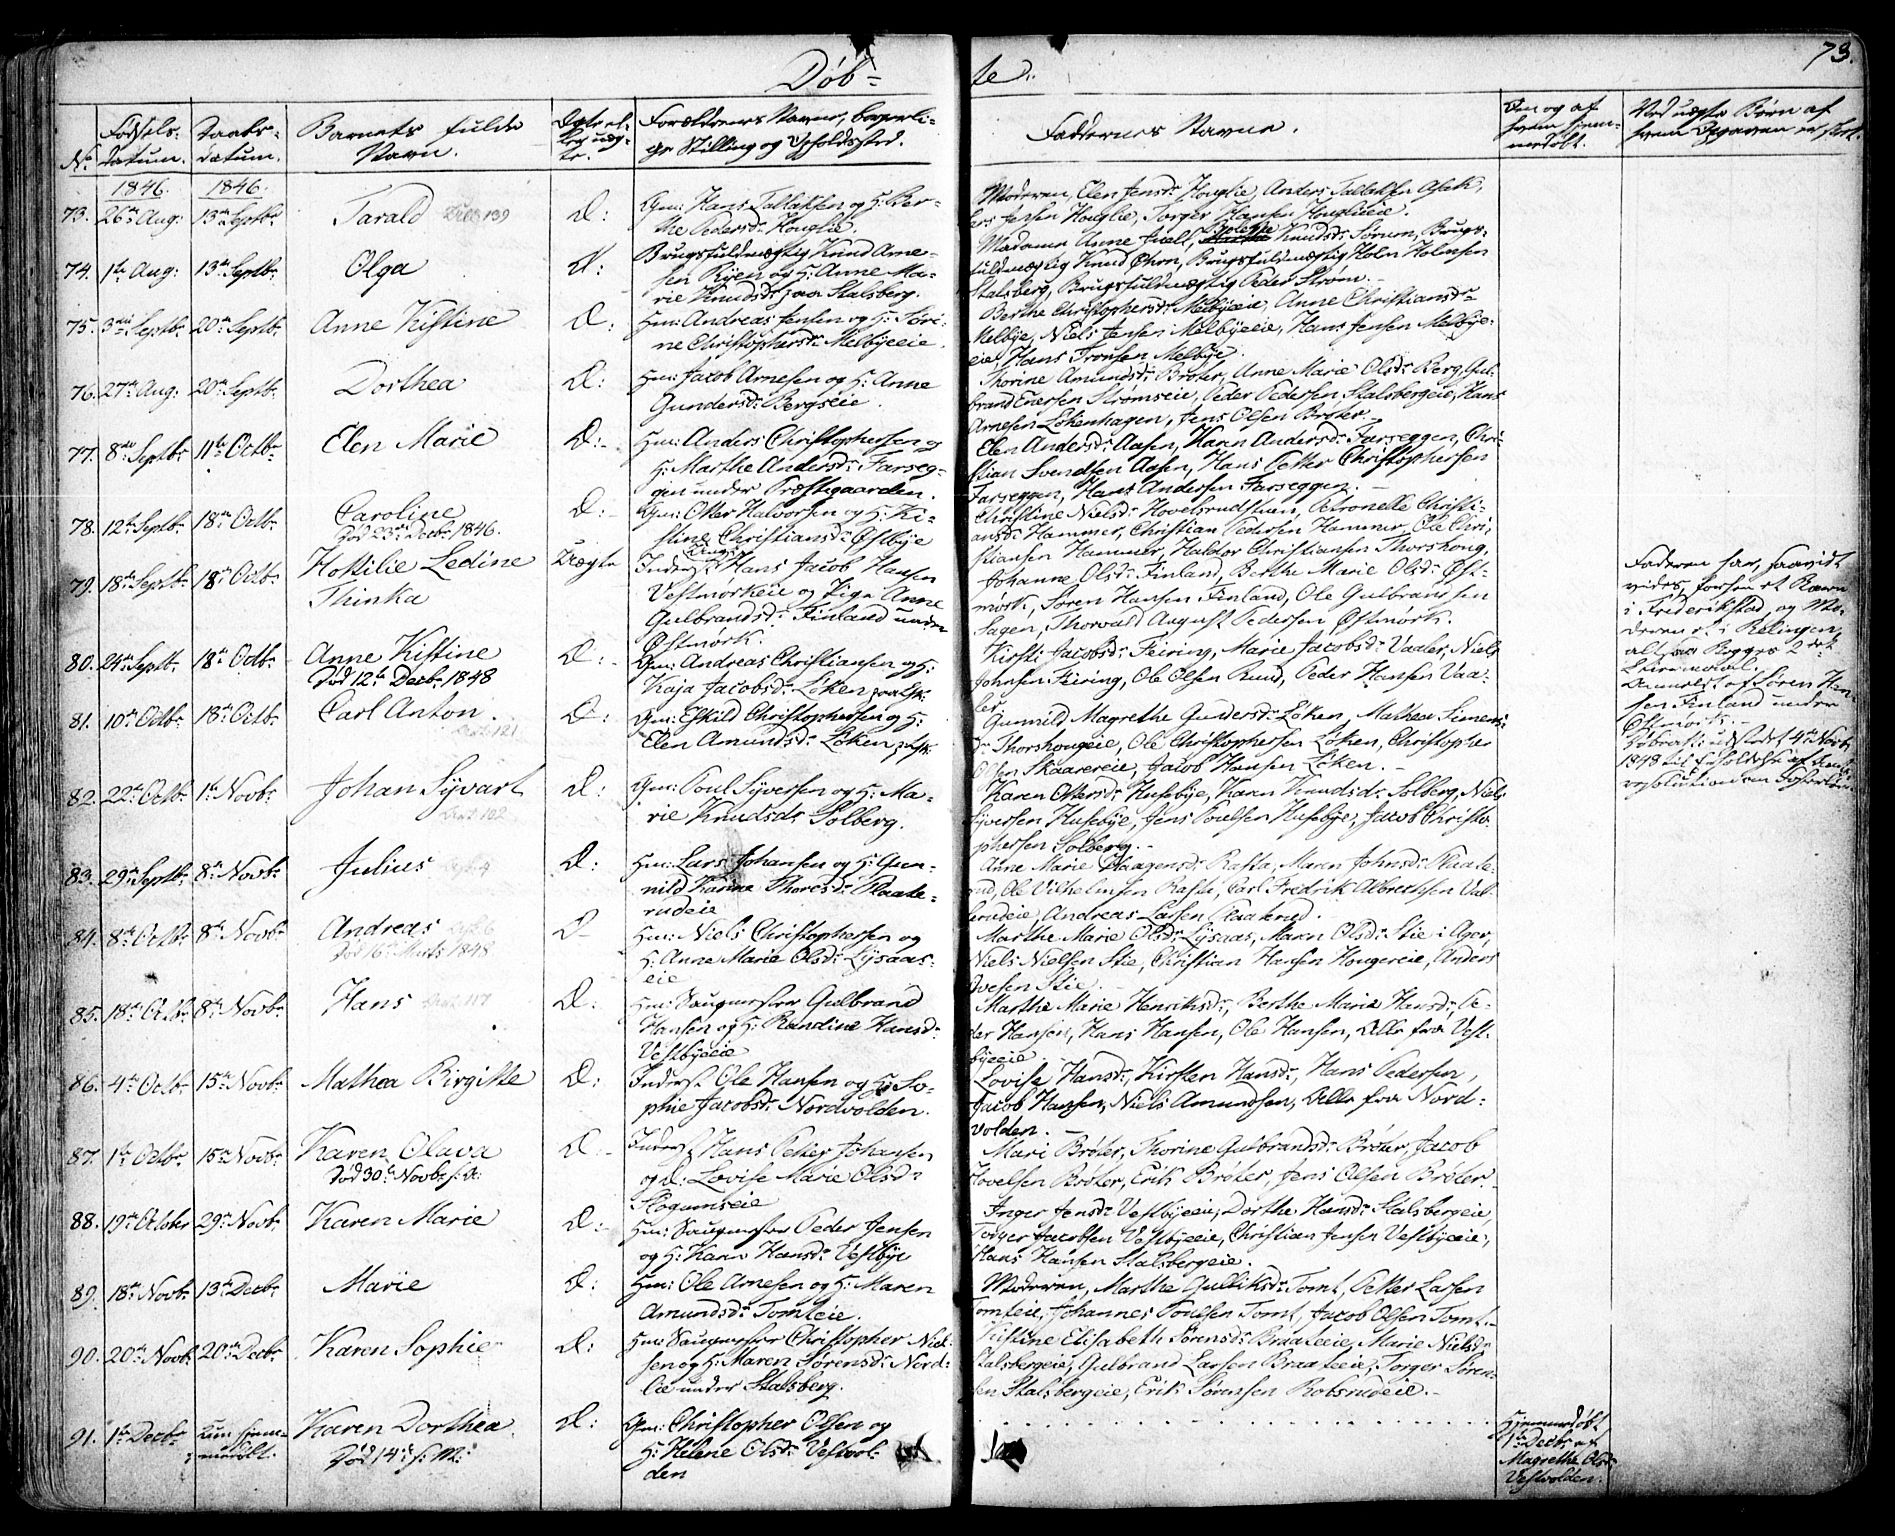 Døb-
te.
73.
No.
Fødsels-
Datum.
Daabs-
Datum.
Barnets fulde
Navn.
Ægte el-
ler uæg-
te.
Forældrenes Navne, borgerli-
ge Stilling og Opholdssted.
Faddernes Navne.
Om og af
hvem hjem-
medøbt.
Ved uægte Børn af
hvem Opgaven er skeet.
1846. 1846.
73. 26de Aug: 13de Septbr Tarald
Æ:
Gm: Hans Tallaksen og H: Ber-
the Pedersdr Houglie.
Moderen, Elen Jensdr Houglie, Anders Tallaksen Asak,
Lars Jensen Houglie, Torger Hansen Houglieeie.
74. 1ste Aug: 13de Septbr Olga
Æ:
Brugsfuldmægtig Knud Arne-
sen Ryen og H: Anne Ma-
rie Knudsdr paa Stalsberg.
Madame Anne Juell, Knudsdr Sørum, Brugs-
fuldmægtig Knud Øhrn, Brugsfuldmægtig Holm Holmsen
Stalsberg, Brugsfuldmægtig Peder Strøm.
75. 3die Septbr 20de Septbr Anne Kistine
Æ:
Hm: Andreas Jensen og H: Søri-
ne Christophersdr Melbyeeie.
Berthe Christophersdr Melbyeeie, Anne Christiansdr
Melbye, Niels Jensen Melbyeeie, Hans Jensen Melbye-
eie, Hans Tronsen Melbye.
76. 27de Aug: 20de Septbr Dorthea
Æ:
Hm: Jacob Arnesen og H: Anne
Gundersdr Bergseie.
Thorine Amundsdr Brøter, Anne Marie Olsdr Berg, Gul-
brand Enersen Strømseie, Peder Pedersen Stalsbergeie, Hans
Arnesen Løkenhagen, Jens Olsen Brøter.
77. 8de Septbr 11te Octbr Elen Marie
Æ:
Hm: Anders Christophersen og
H: Marthe Andersdr Farseg-
gen under Præstegaarden.
Elen Andersdr Aasen, Karen Andersdr Farseggen, Chri-
stian Svendsen Aasen, Hans Petter Christophersen
Farseggen, Hans Andersen Farseggen.
78. 12te Septbr 18de Octbr Caroline
Død 23de Decbr 1846.
Æ:
Gm: Otter Halvorsen og H: Ki-
stine Christiansdr Østbye
Christine Nielsdr Hovelsrudstuen, Petronelle Christi-
ansdr Hammer, Christian Pedersen Hammer, Ole Chri-
stiansen Hammer, Haldor Christiansen Thorshoug.
79. 18de Septbr 18de Octbr Hottilie Ledine
Thinka
Uægte
Inderst Hans Jacob Hansen
Vestmørkeie og Pige Anne
Gulbrandsdr Finland under
Østmørk.
Johanne Olsdr Finland, Berthe Marie Olsdr Øst-
mørk, Søren Hansen Finland, Ole Gulbrandsen
Sagen, Thorvald August Pedersen Østmørk.
Faderen har, saavidt
vides, forhen et Barn
i Frederikstad og Mo-
deren et i Relingen,
altsaa Begges 2det
Leiermaal.
Anmeldt af Søren Han-
sen Finland under
Østmørk.
80. 24de Septbr 18de Octbr Anne Kistine
Død 12te Decbr 1848
Æ:
Gm: Andreas Christiansen og H:
Kaja Jacobsdr Løken
Kirsti Jacobsdr Feiring, Marie Jacobsdr Vaaler, Niels
Johnsen Feiring, Ole Olsen Rud, Peder Hansen Vaa-
ler.
81. 10de Octbr 18de Octbr Carl Anton.
Æ:
Gm: Eskild Christophersen og H:
Elen Amundsdr Løken
Gunnild Magrethe Gundersdr Løken, Mathea Simens-
dr Thorshougeie, Ole Christophersen Løken, Christopher
Olsen Skaarereie, Jacob Hansen Løken.
82. 22de Octbr 1ste Novbr Johan Syvart
Æ:
Gm: Poul Syversen og H: Ma-
rie Knudsdr Solberg.
Karen Ottersdr Husebye, Karen Knudsdr Solberg, Niels
Syversen Husebye, Jens Poulsen Husebye, Jacob Christo-
phersen Solberg.
83. 29de Septbr 8de Novbr Julius
Æ:
Hm: Lars Johansen og H: Gun-
nild Karine Thoresdr Plaate-
rudeie
Anne Marie Haagensdr Rasta, Maren Johnsdr Plaate-
rud, Ole Vilhelmsen Rasta, Carl Fredrik Albrethsen
Andreas Larsen Plaaterud.
84. 8de Octbr 8de Novbr Andreas
Død 16de Marts 1848.
Æ
Hm: Niels Christophersen og
H: Anne Marie Olsdr Lysaas-
eie
Marthe Marie Olsdr Lysaas, Maren Olsdr Stie i Ager,
Niels Nielsen Stie, Christian Hansen Hougereie, Anders
Ivesen Stie.
85. 18de Octbr 8de Novbr Hans
Æ:
Hm: Saugmester Gulbrand
Hansen og H: Randine Hansdr
Vestbyeeie
Marthe Marie Henriksdr, Berthe Marie Hansdr, Pe-
der Hansen, Hans Hansen, Ole Hansen, Alle fra Vest-
byeeie.
86. 4de Octbr 15de Novbr Mathea Birgitte
Æ:
Inderst Ole Hansen og H: So-
phie Jacobsdr Nordvolden.
Lovise Hansdr, Kirsten Hansdr, Hans Pedersen,
Jacob Hansen, Niels Amundsen, Alle fra Nord-
volden.
87. 1ste Octbr 15de Novbr Karen Olava
Død 30te Novbr s: A:
Æ:
Inderst Hans Petter Johansen
og H: Lovise Marie Olsdr
Slogumseie
Mari Brøter, Thorine Gulbrandsdr Brøter, Jacob
Hovelsen Brøter, Erik Brøter, Jens Olsen Brøter.
88. 19de October 29de Novbr Karen Marie
Æ:
Hm: Saugmester Peder Jensen
og H: Karen Hansdr Vestbye
Inger Jensdr Vestbyeeie, Dorthe Hansdr Stalsbergeie,
Torger Jacobsen Vestbyeeie, Christian Jensen Vestbyeeie,
Hans Hansen Stalsbergeie.
89. 18de Novbr 13de Decbr Marie
Æ:
Hm: Ole Arnesen og H: Maren
Amundsdr Tomteie.
Moderen, Marthe Gulliksdr Tomt, Petter Larsen
Tomteie, Johannes Poulsen Tomt, Jacob Olsen Tomt.
90. 20de Novbr 20de Decbr Karen Sophie
Æ:
Hm: Saugmester Christopher Niel-
sen og H: Maren Sørensdr Nord-
lie under Stalsberg.
Kistine Elisabeth Sørensdr Braateeie, Marie Nielsdr
Stalsbergeie, Gulbrand Larsen Braateeie, Torger Søren-
sen Stalsbergeie, Erik Sørensen Robsrudeie.
91. 1ste Decbr Kun hjem-
medøbt. Karen Dorthea.
Død 14de s: M:
Æ:
Gm: Christopher Olsen og
H: Helene Olsdr Vestvol-
den
Hjemmedøbt
1ste Decbr af
Magrethe Olsdr
Vestvolden.